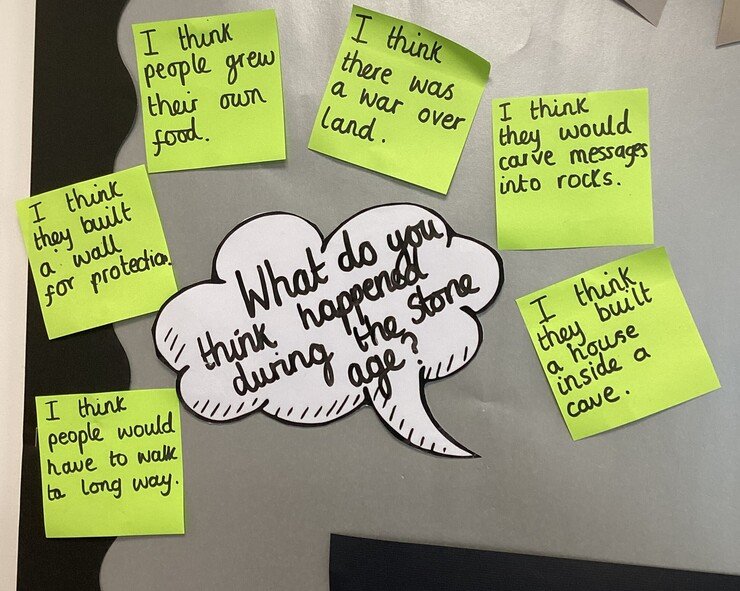 I think
people grew
their own
food.
I think
there was
a war over
land.
I think
they would
carve messages
into rocks.
I think
they built
a wall
for protection.
What do you
think happened
during the stone
age?
I think
they built
a house
inside a
cave.
I think
people would
have to walk
ta long way.